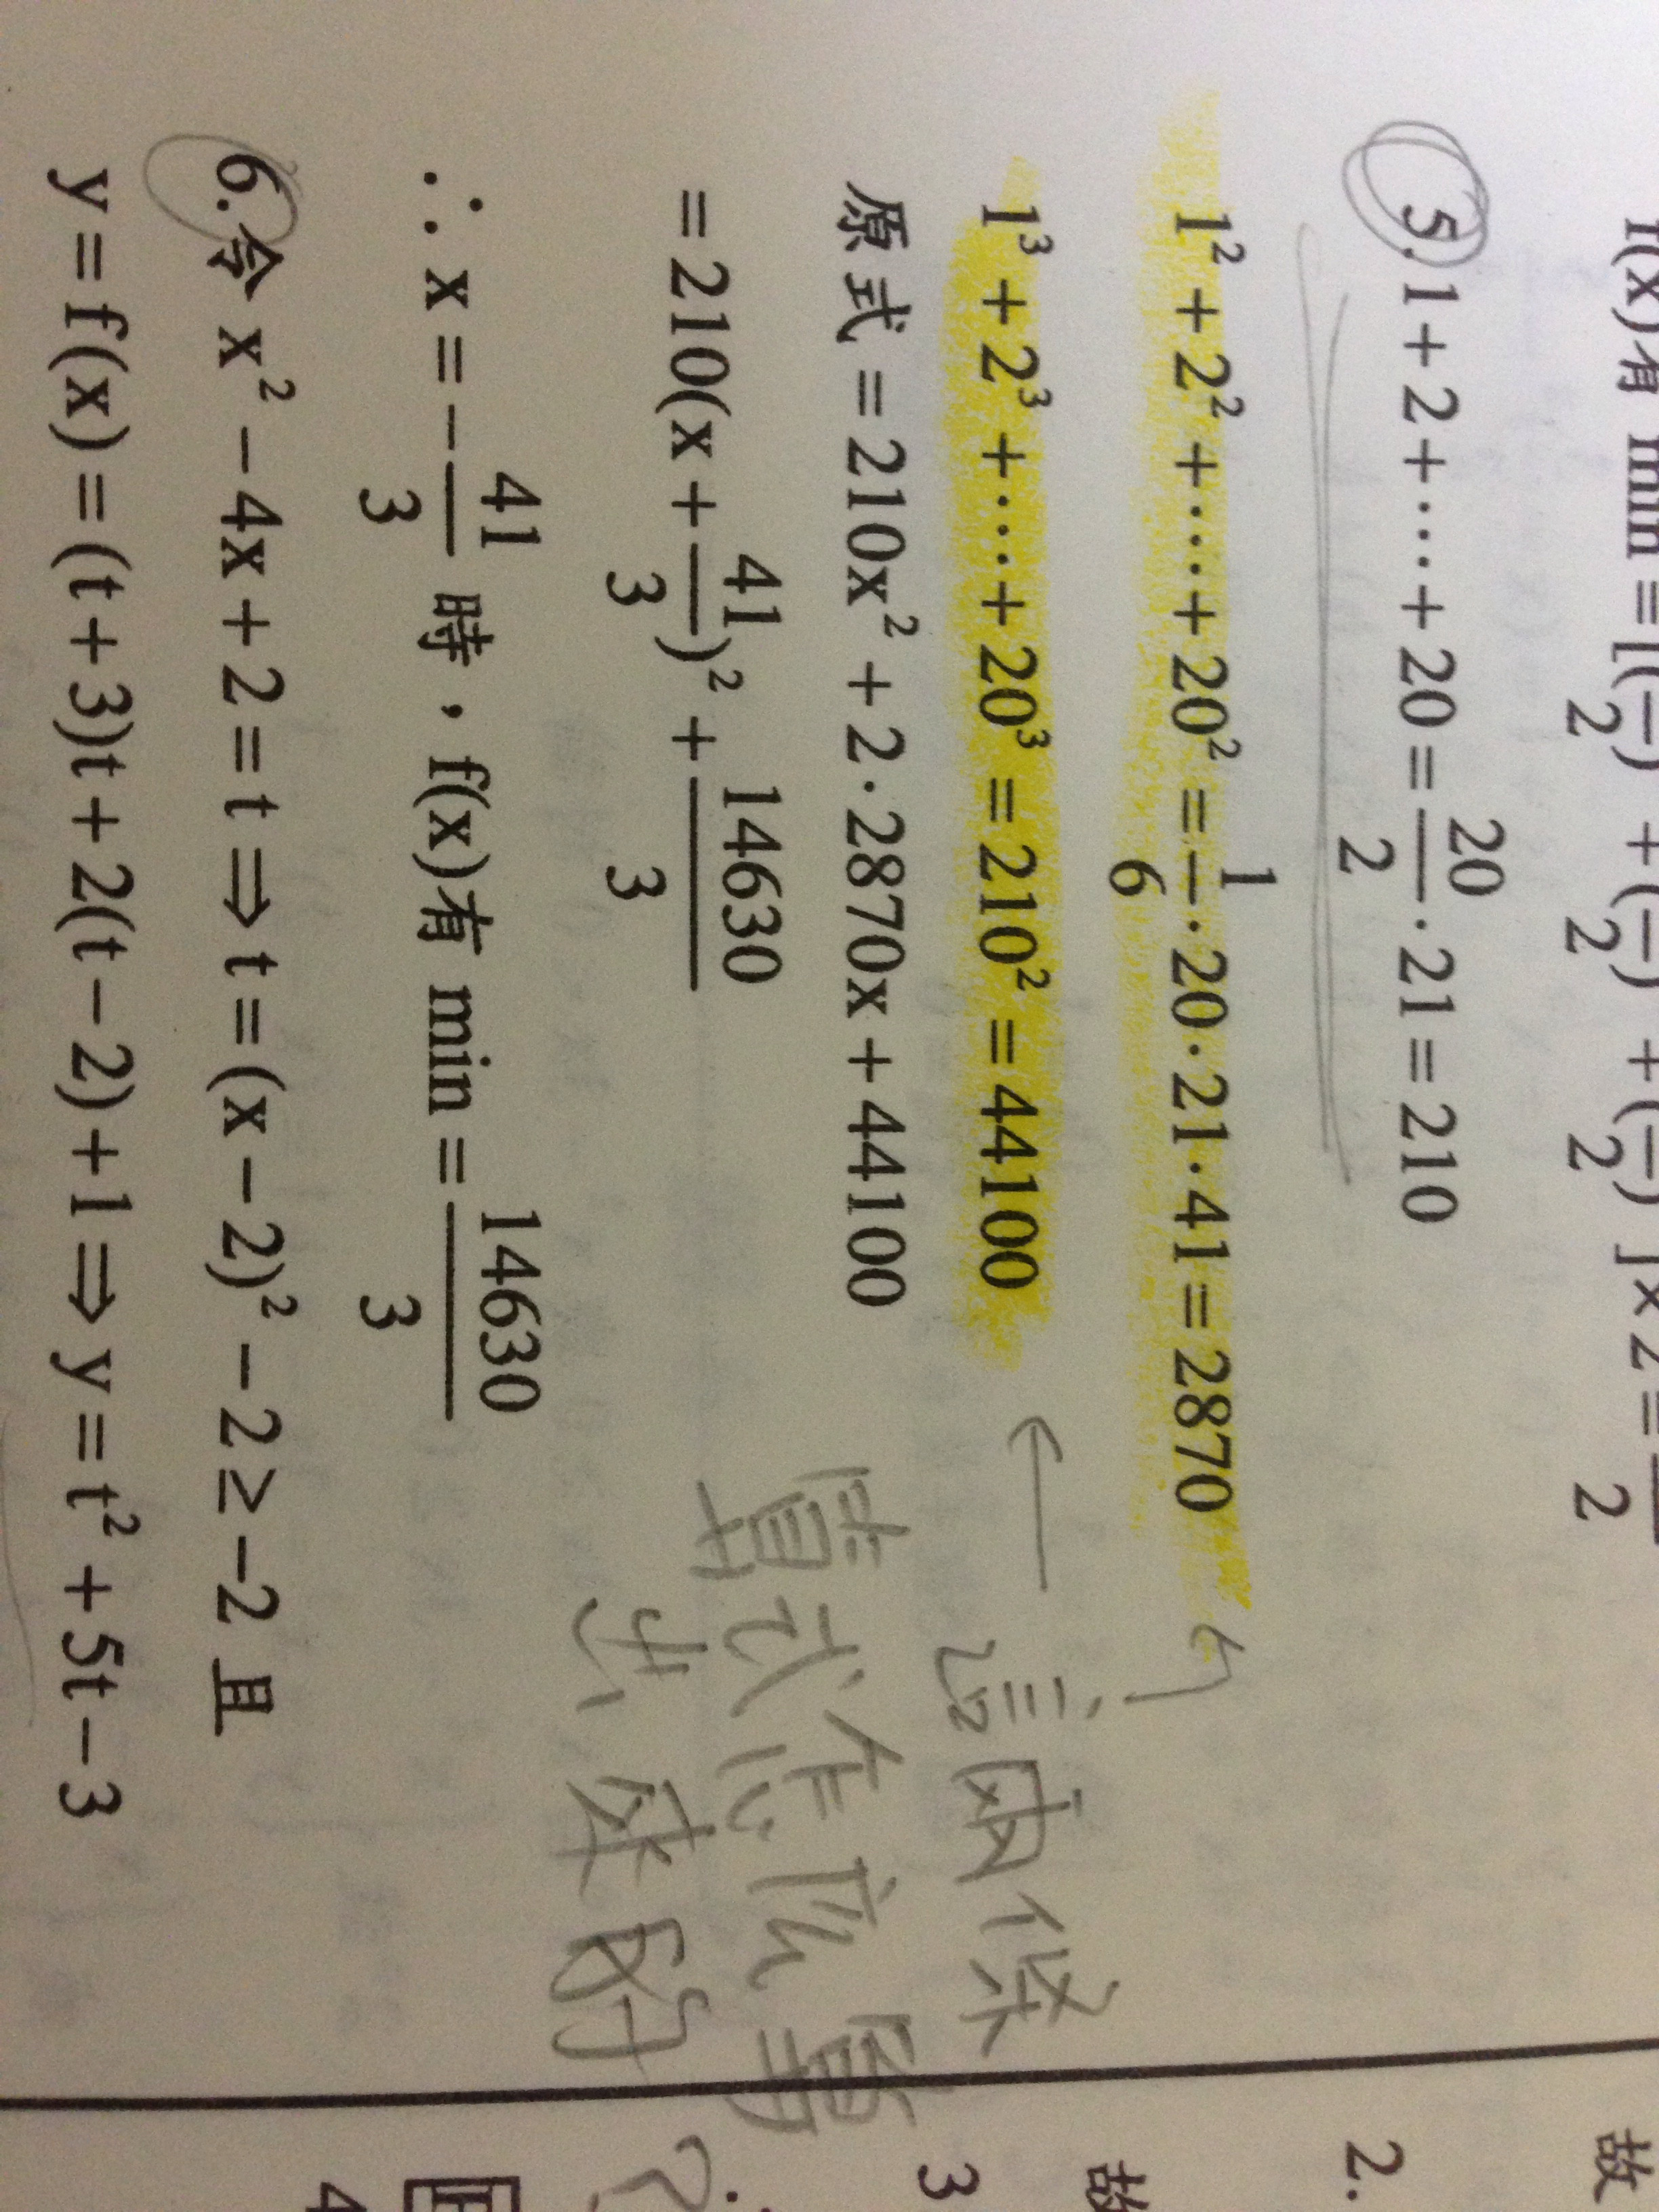 f(x)有 min = [(—/2) + (—/2) + (—/2) ] × 2 = —/2
5. 1 + 2 + ⋯ + 20 = 20/2 · 21 = 210
1² + 2² + ⋯ + 20² = 1/6 · 20 · 21 · 41 = 2870
1³ + 2³ + ⋯ + 20³ = 210² = 44100
← 這兩條
原式 = 210x² + 2 · 2870x + 44100
算式怎麼寫
= 210(x + 41/3)² + 14630/3
出來的?
∴ x = −41/3 時,f(x)有 min = 14630/3
6. 令 x² − 4x + 2 = t ⇒ t = (x − 2)² − 2 ≥ −2 且
y = f(x) = (t + 3)t + 2(t − 2) + 1 ⇒ y = t² + 5t − 3
故
2.
故
3
4